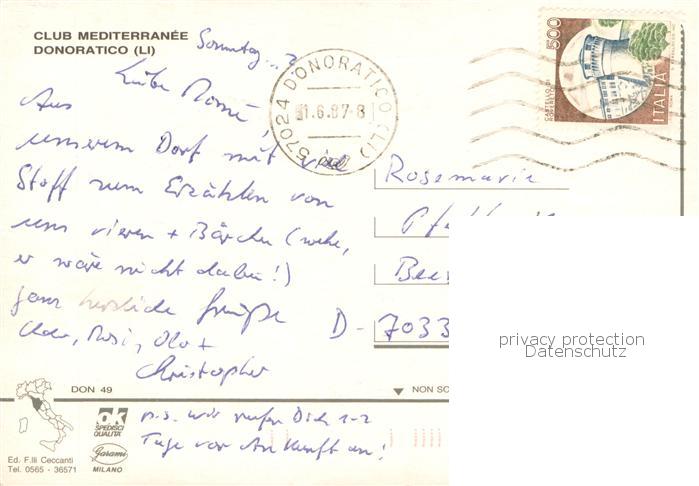 CLUB MEDITERRANÉE
DONORATICO (LI)
Sonntag
Liebe Romi,
Aus
unserem Dorf mit viel
Stoff zum Erzählen von
uns vieren + Bärchen (wehe,
er wäre nicht dabei!)
ganz herzliche Grüße
+
Christopher
57024 DONORATICO (LI)
1.6.87-8
500
ITALIA
Rosemarie
D-7033
privacy protection
Datenschutz
DON 49
NON SC
p.s. wir rufen Dich 1-2
Tage vor Ankunft an!
ok
SPEDISCI
QUALITA'
Garami
MILANO
Ed. F.lli Ceccanti
Tel. 0565 - 36571